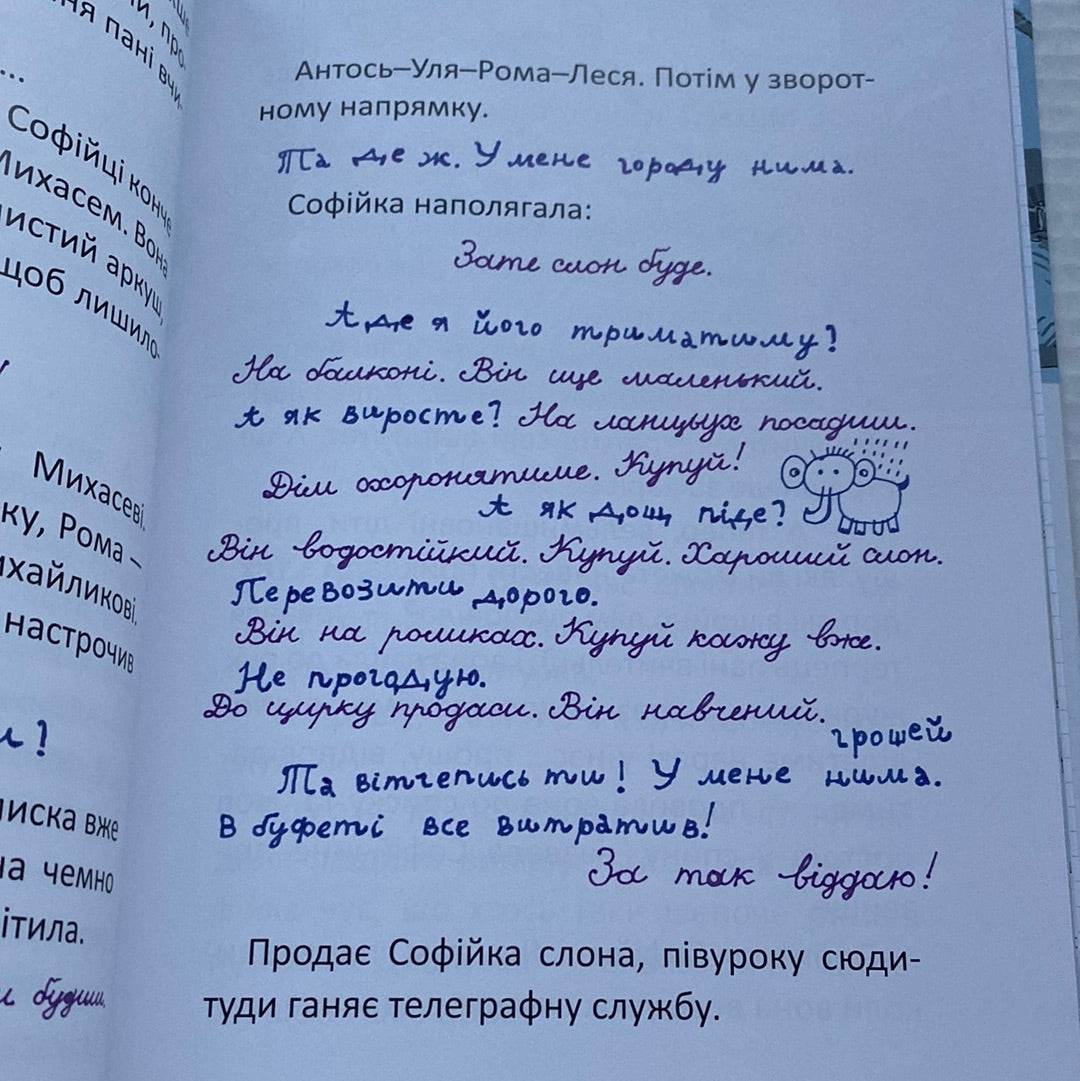 ня пані вчи-
...
Софійці конче
Михасем. Вона
чистий аркуш,
щоб лишило-
Михасеві.
ку, Рома –
ихайликові.
настрочив
и!
писка вже
на чемно
ітила.
и будиш.
Антось–Уля–Рома–Леся. Потім у зворот-
ному напрямку.
Та де ж. У мене городу нима.
Софійка наполягала:
Зате слон буде.
А де я його триматиму?
На балконі. Він ще маленький.
А як виросте? На ланцьух посадиш.
Дім охоронятиме. Купуй!
А як дощ піде?
Він водостійкий. Купуй. Хароший слон.
Перевозити дорого.
Він на роликах. Купуй кажу вже.
Не прогодую.
До цирку продаси. Він навчений.
грошей
Та вітчепись ти! У мене нима.
В буфеті все витратив!
За так віддаю!
Продає Софійка слона, півуроку сюди-
туди ганяє телеграфну службу.